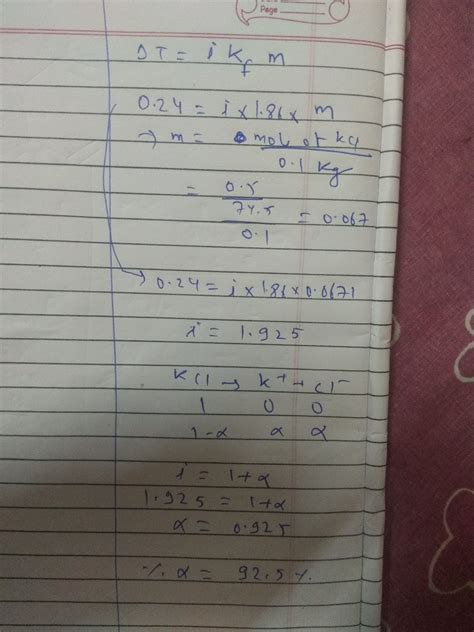 Page
ΔT = i Kf m
0.24 = i × 1.86 × m
→ m = mol of KCl / 0.1 Kg
= 0.5 / 74.5 / 0.1 = 0.067
→ 0.24 = i × 1.86 × 0.0671
i = 1.925
KCl → K+ + Cl-
1 0 0
1-α α α
i = 1+α
1.925 = 1+α
α = 0.925
% α = 92.5 %